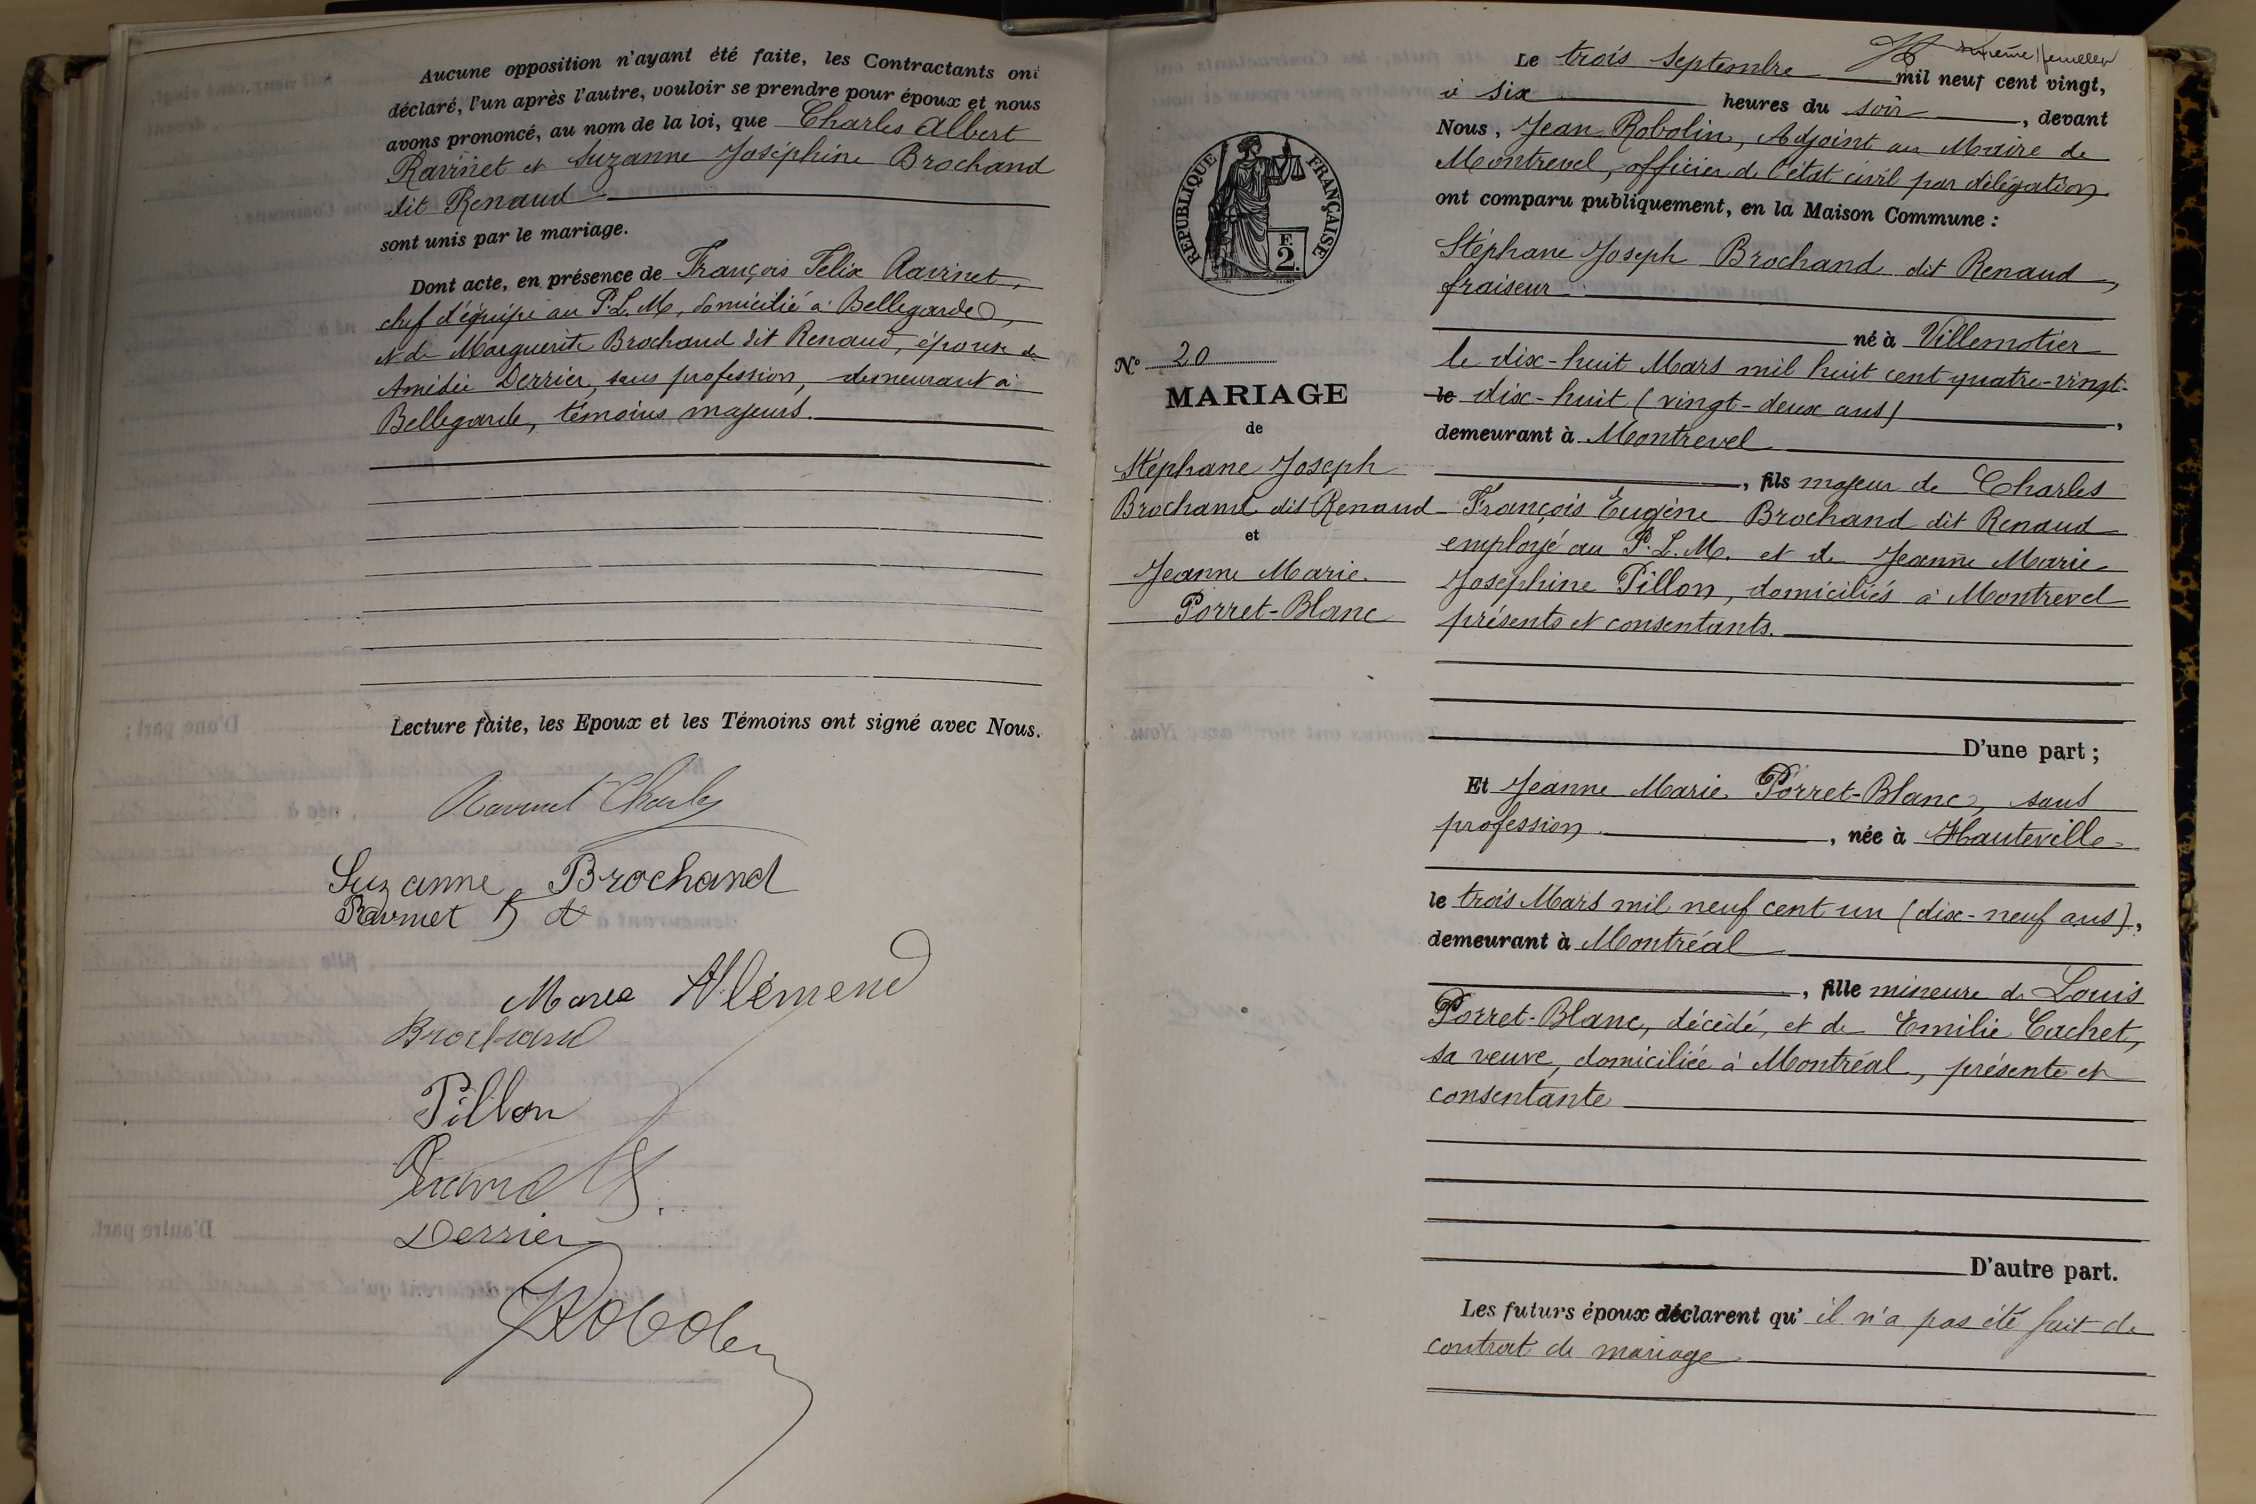 Aucune opposition n'ayant été faite, les Contractants ont
déclaré, l'un après l'autre, vouloir se prendre pour époux et nous
avons prononcé, au nom de la loi, que Charles Albert
Ravinet et Suzanne Joséphine Brochand
dit Renaud
sont unis par le mariage.
Dont acte, en présence de François Félix Ravinet,
chef d'équipe au P.L.M, domicilié à Bellegarde,
et de Marguerite Brochand dit Renaud, épouse de
Amédée Derrier, sans profession, demeurant à
Bellegarde, témoins majeurs.
Lecture faite, les Epoux et les Témoins ont signé avec Nous.
Ravinet Charles
Suzanne Brochand
Ravinet
Marie Alémend
Brochand
Pillon
Derrier
JRobolin
REPUBLIQUE FRANÇAISE
F.
2.
N° 20
MARIAGE
de
Stéphane Joseph
Brochand dit Renaud
et
Jeanne Marie
Porret-Blanc
feuillet
Le trois Septembre mil neuf cent vingt,
à six heures du soir, devant
Nous, Jean Robolin, Adjoint au Maire de
Montrevel, officier de l'état civil par délégation
ont comparu publiquement, en la Maison Commune :
Stéphane Joseph Brochand dit Renaud,
fraiseur
né à Villemotier
le dix-huit Mars mil huit cent quatre-vingt-
le dix-huit (vingt-deux ans),
demeurant à Montrevel
, fils majeur de Charles
François Eugène Brochand dit Renaud
employé au P.L.M. et de Jeanne Marie
Joséphine Pillon, domiciliés à Montrevel
présents et consentants.
D'une part ;
Et Jeanne Marie Porret-Blanc, sans
profession, née à Hauteville
le trois Mars mil neuf cent un (dix-neuf ans),
demeurant à Montréal
, fille mineure de Louis
Porret-Blanc, décédé, et de Emilie Cachet,
sa veuve, domiciliée à Montréal, présente et
consentante
D'autre part.
Les futurs époux déclarent qu'il n'a pas été fait de
contrat de mariage